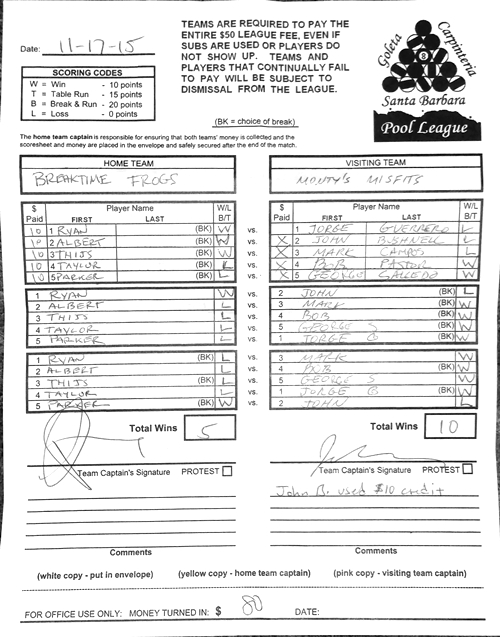 Date: 11-17-15
SCORING CODES
W = Win - 10 points
T = Table Run - 15 points
B = Break & Run - 20 points
L = Loss - 0 points
TEAMS ARE REQUIRED TO PAY THE
ENTIRE $50 LEAGUE FEE, EVEN IF
SUBS ARE USED OR PLAYERS DO
NOT SHOW UP. TEAMS AND
PLAYERS THAT CONTINUALLY FAIL
TO PAY WILL BE SUBJECT TO
DISMISSAL FROM THE LEAGUE.
(BK = choice of break)
Goleta Carpinteria
8
Santa Barbara
Pool League
The home team captain is responsible for ensuring that both teams' money is collected and the
scoresheet and money are placed in the envelope and safely secured after the end of the match.
HOME TEAM VISITING TEAM
BREAKTIME FROGS MONTY'S MISFITS
$ Player Name W/L $ Player Name W/L
Paid FIRST LAST B/T Paid FIRST LAST B/T
10 1 RYAN (BK) W vs. 1 JORGE GUERRERO L
10 2 ALBERT (BK) W vs. X 2 JOHN BUSHNELL L
10 3 THIJS (BK) W vs. X 3 MARK CAMPOS L
10 4 TAYLOR (BK) L vs. X 4 BOB PASTOR W
10 5 PARKER (BK) L vs. X 5 GEORGE SALCEDO W
1 RYAN W vs. 2 JOHN (BK) L
2 ALBERT L vs. 3 MARK (BK) W
3 THIJS L vs. 4 BOB (BK) W
4 TAYLOR L vs. 5 GEORGE S (BK) W
5 PARKER L vs. 1 JORGE G (BK) W
1 RYAN (BK) L vs. 3 MARK W
2 ALBERT L vs. 4 BOB (BK) W
3 THIJS (BK) L vs. 5 GEORGE S W
4 TAYLOR L vs. 1 JORGE G (BK) W
5 PARKER (BK) W vs. 2 JOHN L
Total Wins 5 Total Wins 10
Team Captain's Signature PROTEST Team Captain's Signature PROTEST
John B. used $10 credit
Comments Comments
(white copy - put in envelope) (yellow copy - home team captain) (pink copy - visiting team captain)
FOR OFFICE USE ONLY: MONEY TURNED IN: $ 80 DATE: